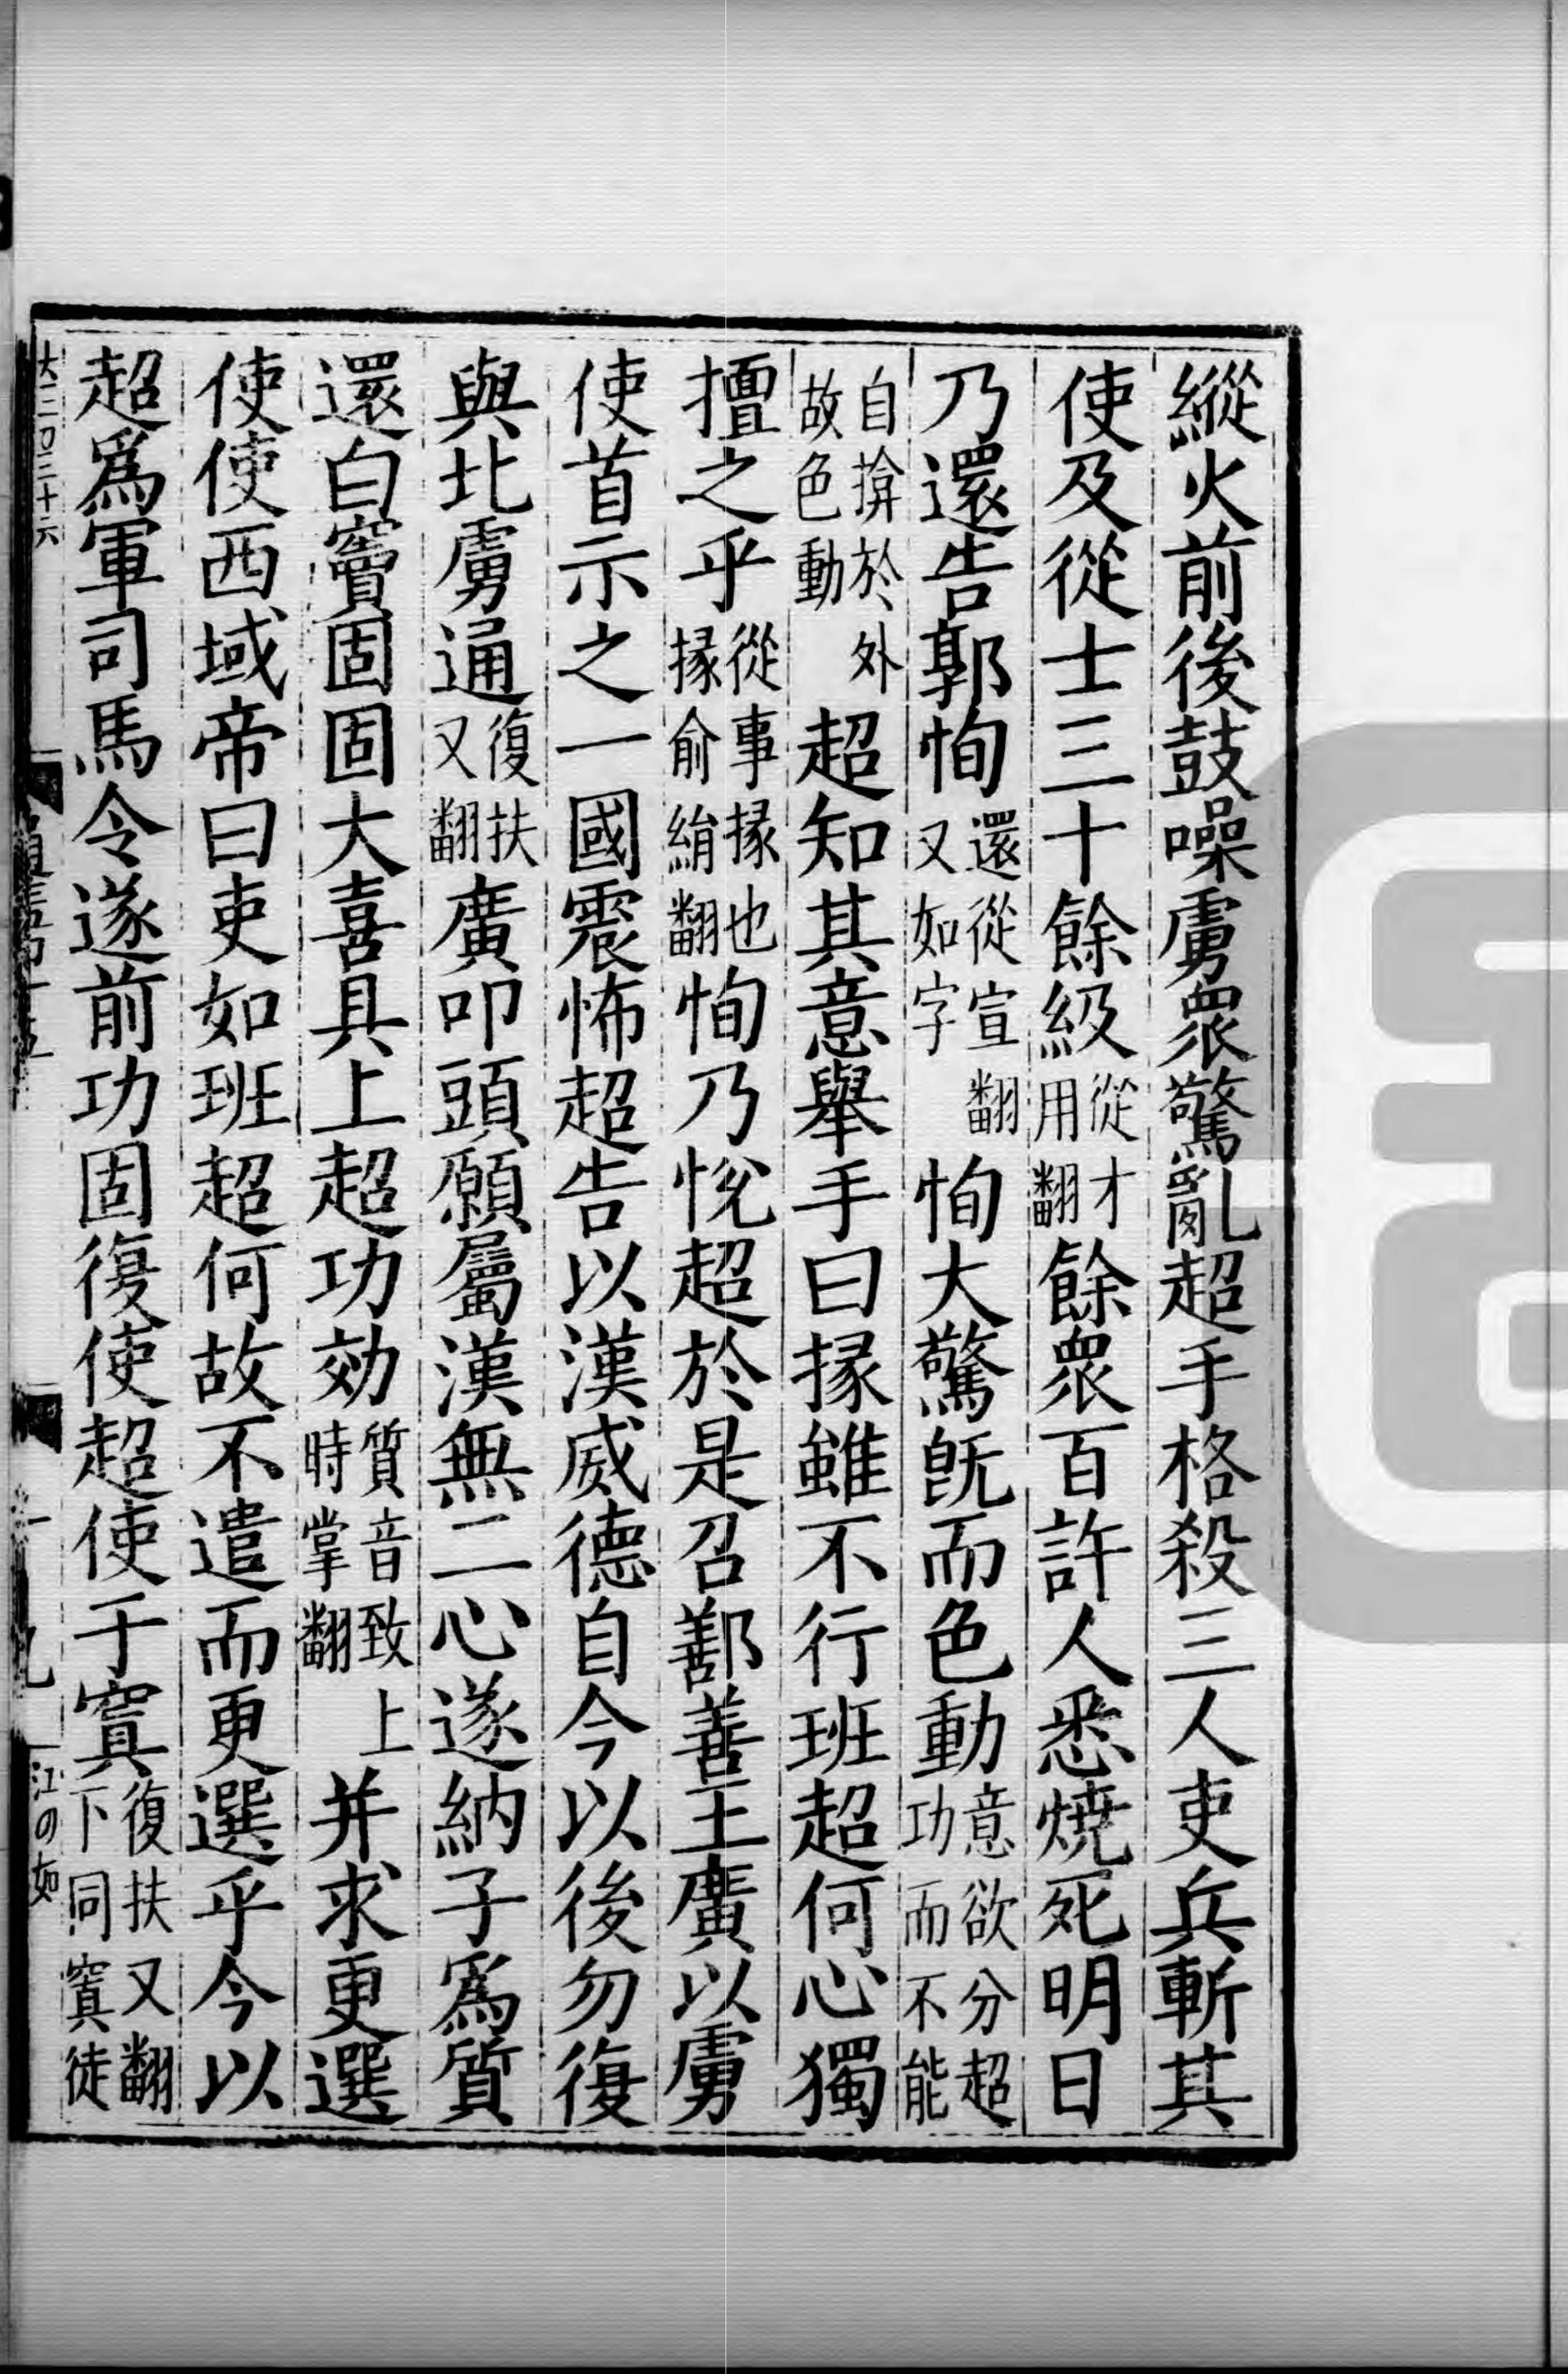 縱火前後鼓噪虜衆驚亂超手格殺三人吏兵斬其
使及從士三十餘級從才用翻餘衆百許人悉燒死明日
乃還告郭恂還從宣翻又如字恂大驚旣而色動意欲分超功而不能
自揜於外故色動超知其意舉手曰掾雖不行班超何心獨
擅之乎從事掾也掾俞絹翻恂乃悅超於是召鄯善王廣以虜
使首示之一國震怖超告以漢威德自今以後勿復
與北虜通復扶又翻廣叩頭願屬漢無二心遂納子爲質
還白竇固固大喜具上超功効質音致上時掌翻并求更選
使使西域帝曰吏如班超何故不遣而更選乎今以
超爲軍司馬令遂前功固復使超使于窴復扶又翻下同窴徒